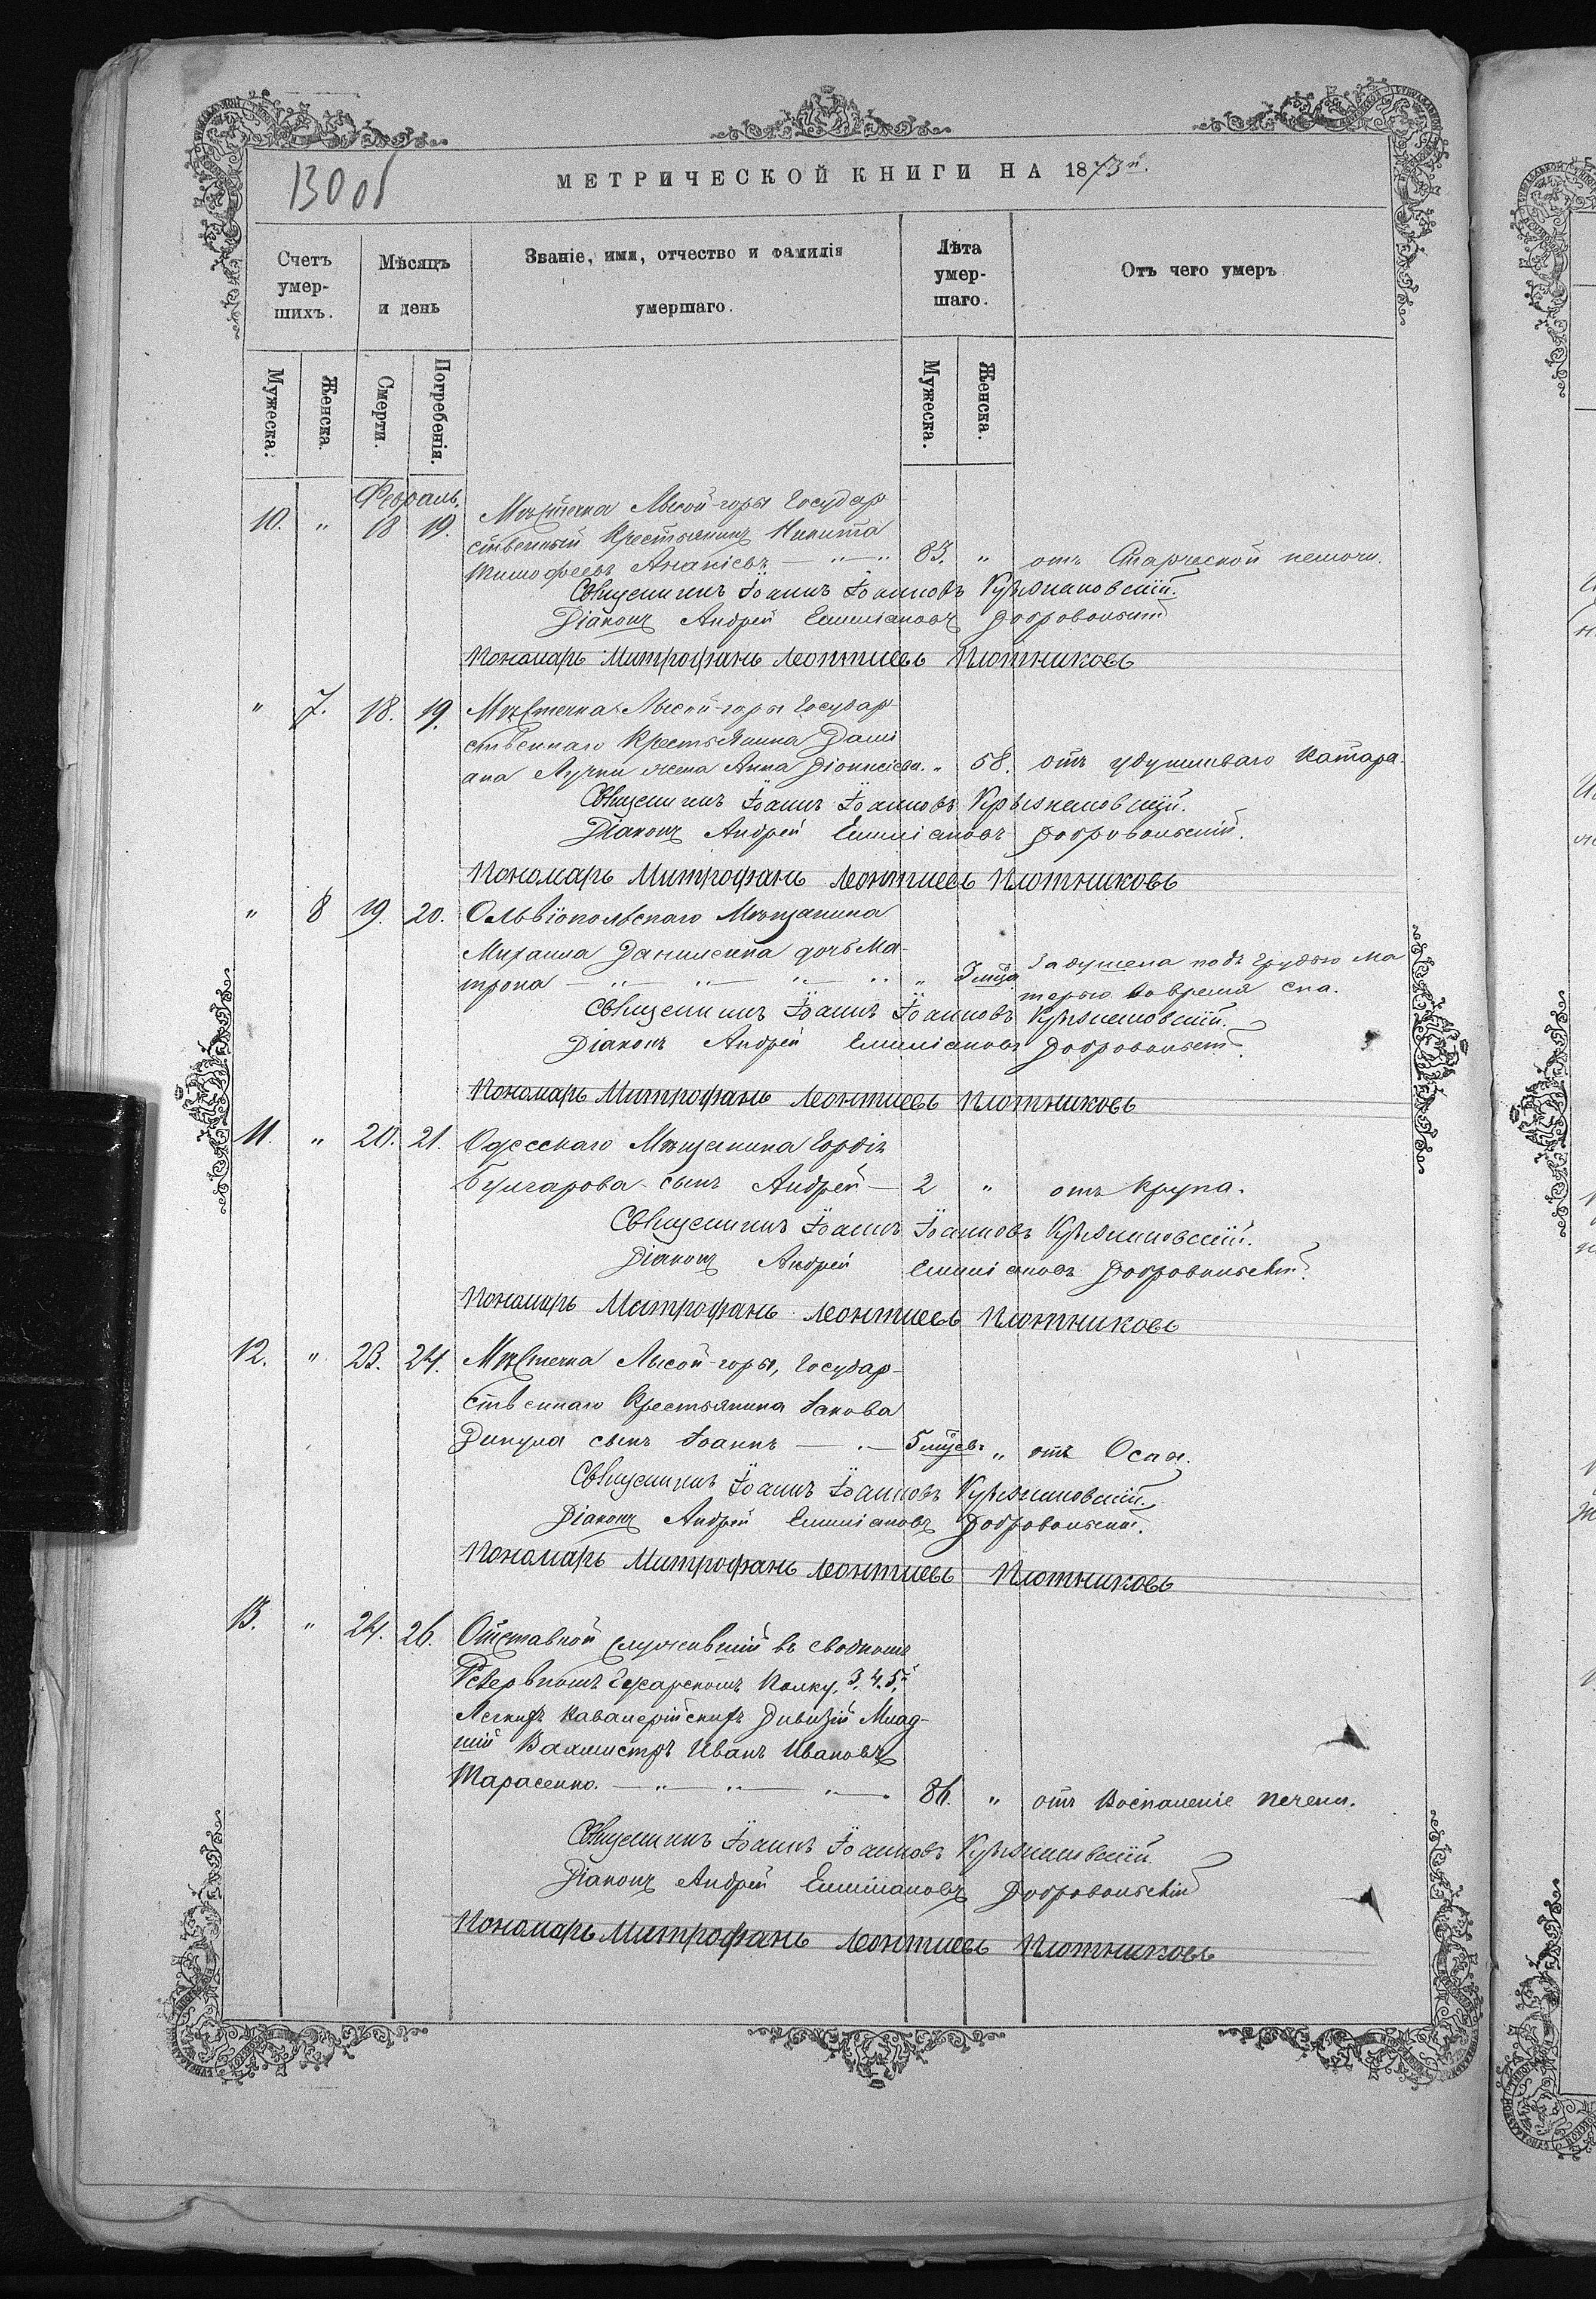 130 об
МЕТРИЧЕСКОЙ КНИГИ НА 1873й.
Счетъ умер-шихъ.
Мѣсяцъ и день
Званіе, имя, отчество и фамилія умершаго.
Лѣта умер-шаго.
Отъ чего умеръ
Мужеска.
Женска.
Смерти.
Погребенія.
Мужеска.
Женска.
Февраль.
10. " 18 19. Мѣстечка Лысой-горы Государ
ственный Крестьянинъ Никита
Тимофеевъ Ананіевъ — " — " 83. " отъ Старческой немочи.
Священникъ Іоаннъ Іоанновъ
Діаконъ Андрей Емиліановъ Добровольскій
Пономарь Митрофанъ Леонтиевъ Плотниковъ
" 7. 18. 19. Мѣстечка Лысой-горы Государ
ственнаго Крестьянина Дами
ана Лучки жена Анна Діонисіева. " 58. отъ удушливаго Катара.
Священникъ Іоаннъ Іоанновъ
Діаконъ Андрей Емиліановъ Добровольскій.
Пономарь Митрофанъ Леонтиевъ Плотниковъ
" 8 19. 20. Ольвіопольскаго Мѣщанина
Михаила Данилекна дочь Ма-
трона — " — " — " — " " 3 мѣся Задушена подъ грудью ма
терью во время сна.
Священникъ Іоаннъ Іоанновъ
Діаконъ Андрей Емиліановъ Добровольскій.
Пономарь Митрофанъ Леонтиевъ Плотниковъ
11. " 20. 21. Одесскаго Мѣщанина Гордія
Булгарова сынъ Андрей — 2 " отъ Крупа.
Священникъ Іоаннъ Іоанновъ
Діаконъ Андрей Емиліановъ Добровольскій.
Пономарь Митрофанъ Леонтиевъ Плотниковъ
12. " 23. 24. Мѣстечка Лысой-горы, Государ-
ственнаго Крестьянина Іакова
Дикула сынъ Іоаннъ — " — 5 мѣсяцевъ " отъ Оспы.
Священникъ Іоаннъ Іоанновъ
Діаконъ Андрей Емиліановъ Добровольскій.
Пономарь Митрофанъ Леонтиевъ Плотниковъ
13. " 24. 26. Отставной служившій въ сводномъ
Резервномъ Гусарскомъ Полку, 3. 4. 5.й
Легкихъ Кавалерійскихъ Дивизій Млад-
шій Вахмистръ Иванъ Ивановъ
Тарасенко. — " — " — " — . 86. " отъ Воспаленіе печени.
Священникъ Іоаннъ Іоанновъ
Діаконъ Андрей Емиліановъ Добровольскій
Пономарь Митрофанъ Леонтиевъ Плотниковъ